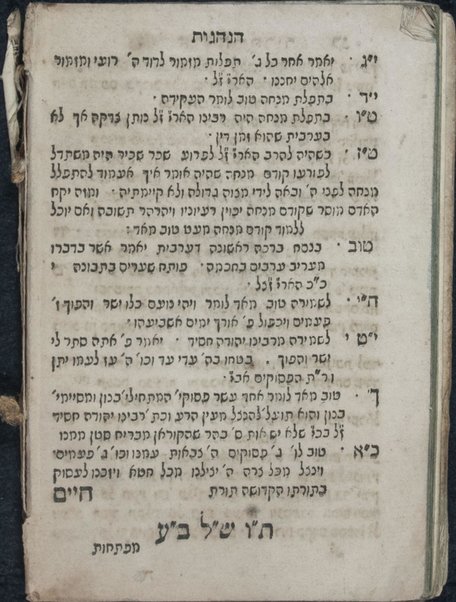 הנהגות
י״ג · יאמר אחר כל ג׳ תפלות מזמור לדוד ה׳ רועי ומזמור
אלהים יחננו · האר״י ז״ל ·
י״ד · בתפלת מנחה טוב לומר העקידה ·
ט״ו · בתפלת מנחה היה רבינו האר״י ז״ל נותן צדקה אך לא
בערבית שהוא זמן דין ·
ט״ז · כשהיה להרב האר״י ז״ל לפרוע שכר שכיר היה משתדל
לפורעו קודם מנחה שהיה אומר איך אעמוד להתפלל
מנחה לפני ה׳ ובאה לידי מצוה גדולה ולא קיימתיה · ומזה יקח
האדם מוסר שקודם מנחה יכוין רעיוניו ויהרהר תשובה ואם יוכל
ללמוד קודם מנחה מעט טוב מאד ·
טוב · בנסח ברכה ראשונה דערבית יאמר אשר בדברו
מעריב ערבים בחכמה · פותח שערים בתבונה
כ״כ האר״י זצ״ל ·
ח״י · לשמירה טוב מאד לומר ויהי נועם כלו ישר והפוך ז׳
פעמים ויכפול פ׳ אורך ימים אשביעהו ·
י״ט · לשמירה מרבינו יהודה חסיד · יאמר פ׳ אתה סתר לי
ישר והפוך · בטחו בה׳ עדי עד וכו׳ ה׳ עז לעמו יתן
ור״ת הפסוקים אב״י ·
ך׳ · טוב מאד לומר אחד עשר פסוקי׳ המתחילי׳ בנון ומסיימי׳
בנון והוא תועל׳ להנצל מעין הרע וכת׳ רבינו יהודה חסיד
ז״ל
כ״א · טוב לו׳ ג׳ פסוקים ה׳ צבאות עמנו וכו׳ ג׳ פעמים
וינצל מכל צרה ה׳ יצילנו מכל חטא ויזכנו לעסוק
בתורתו הקדושה תורת חיים
ת״ו ש״ל ב״ע
מפתחות